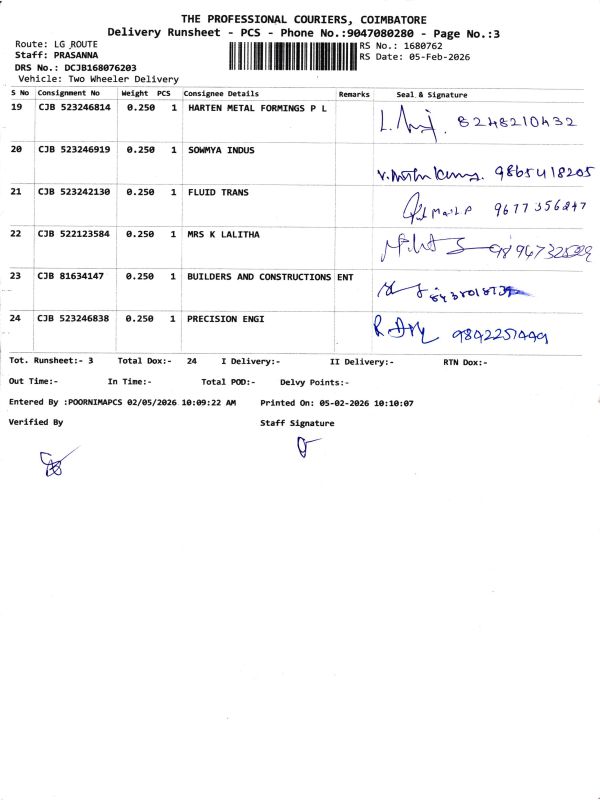 THE PROFESSIONAL COURIERS, COIMBATORE
Delivery Runsheet - PCS - Phone No.:9047080280 - Page No.:3
Route: LG ROUTE RS No.: 1680762
Staff: PRASANNA RS Date: 05-Feb-2026
DRS No.: DCJB168076203
Vehicle: Two Wheeler Delivery
S No Consignment No Weight PCS Consignee Details Remarks Seal & Signature
19 CJB 523246814 0.250 1 HARTEN METAL FORMINGS P L 8248210432
20 CJB 523246919 0.250 1 SOWMYA INDUS 9865418205
21 CJB 523242130 0.250 1 FLUID TRANS 9677356847
22 CJB 522123584 0.250 1 MRS K LALITHA
23 CJB 81634147 0.250 1 BUILDERS AND CONSTRUCTIONS ENT
24 CJB 523246838 0.250 1 PRECISION ENGI
Tot. Runsheet:- 3 Total Dox:- 24 I Delivery:- II Delivery:- RTN Dox:-
Out Time:- In Time:- Total POD:- Delvy Points:-
Entered By :POORNIMAPCS 02/05/2026 10:09:22 AM Printed On: 05-02-2026 10:10:07
Verified By Staff Signature